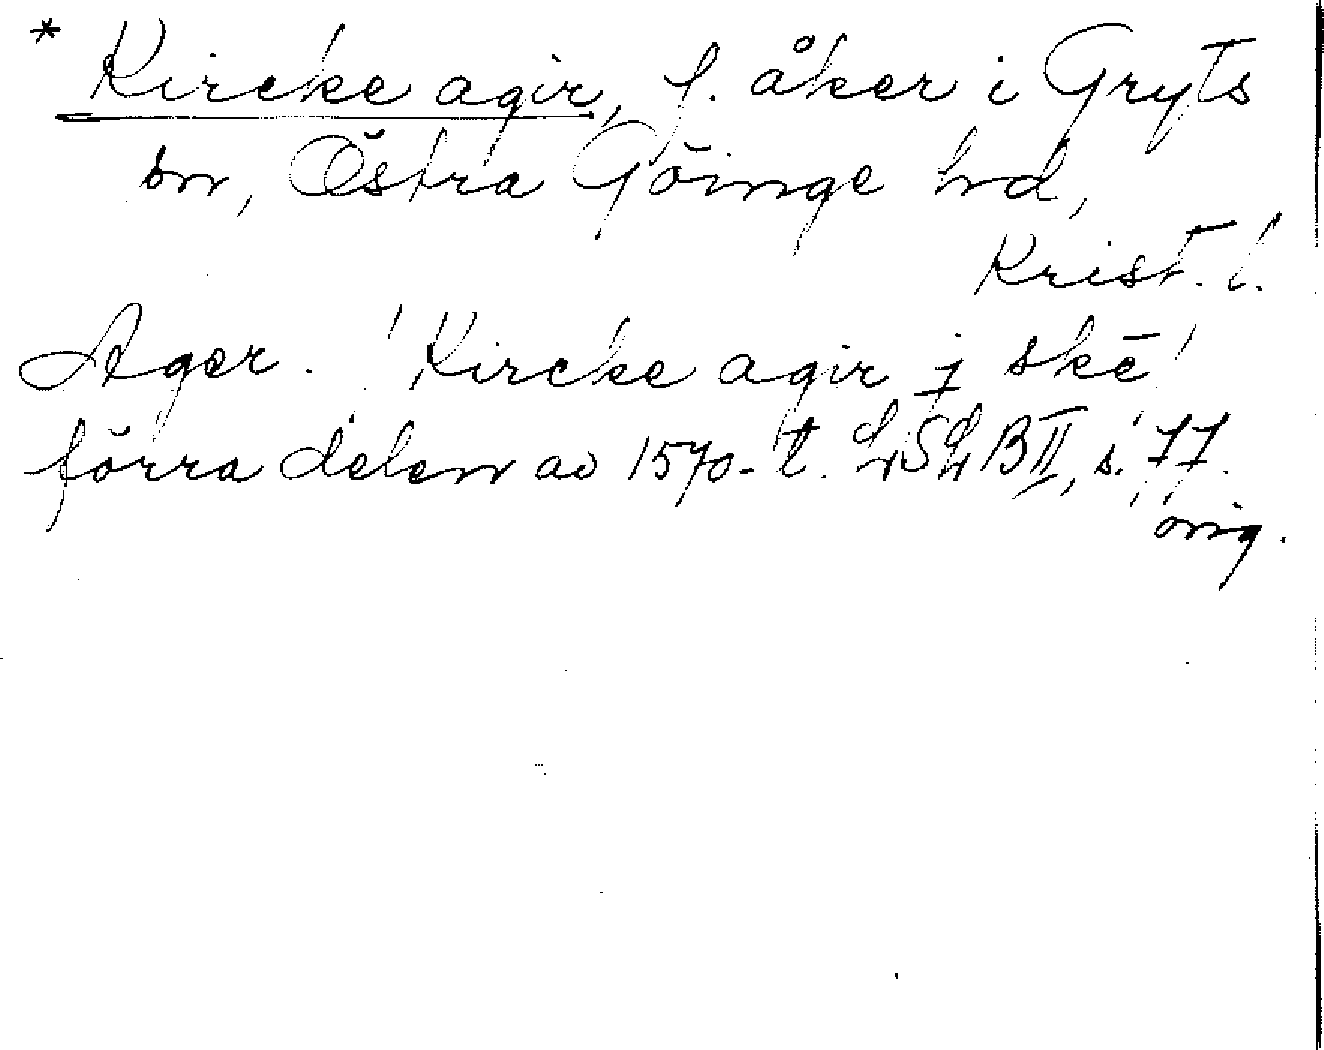 * Kircke agir, f. åker i Gryts
sn, Östra Göinge hd,
Krist. l.
Ager. 'Kircke agir j skē'
förra delen av 1570-t. LSLB II, s. 77.
orig.